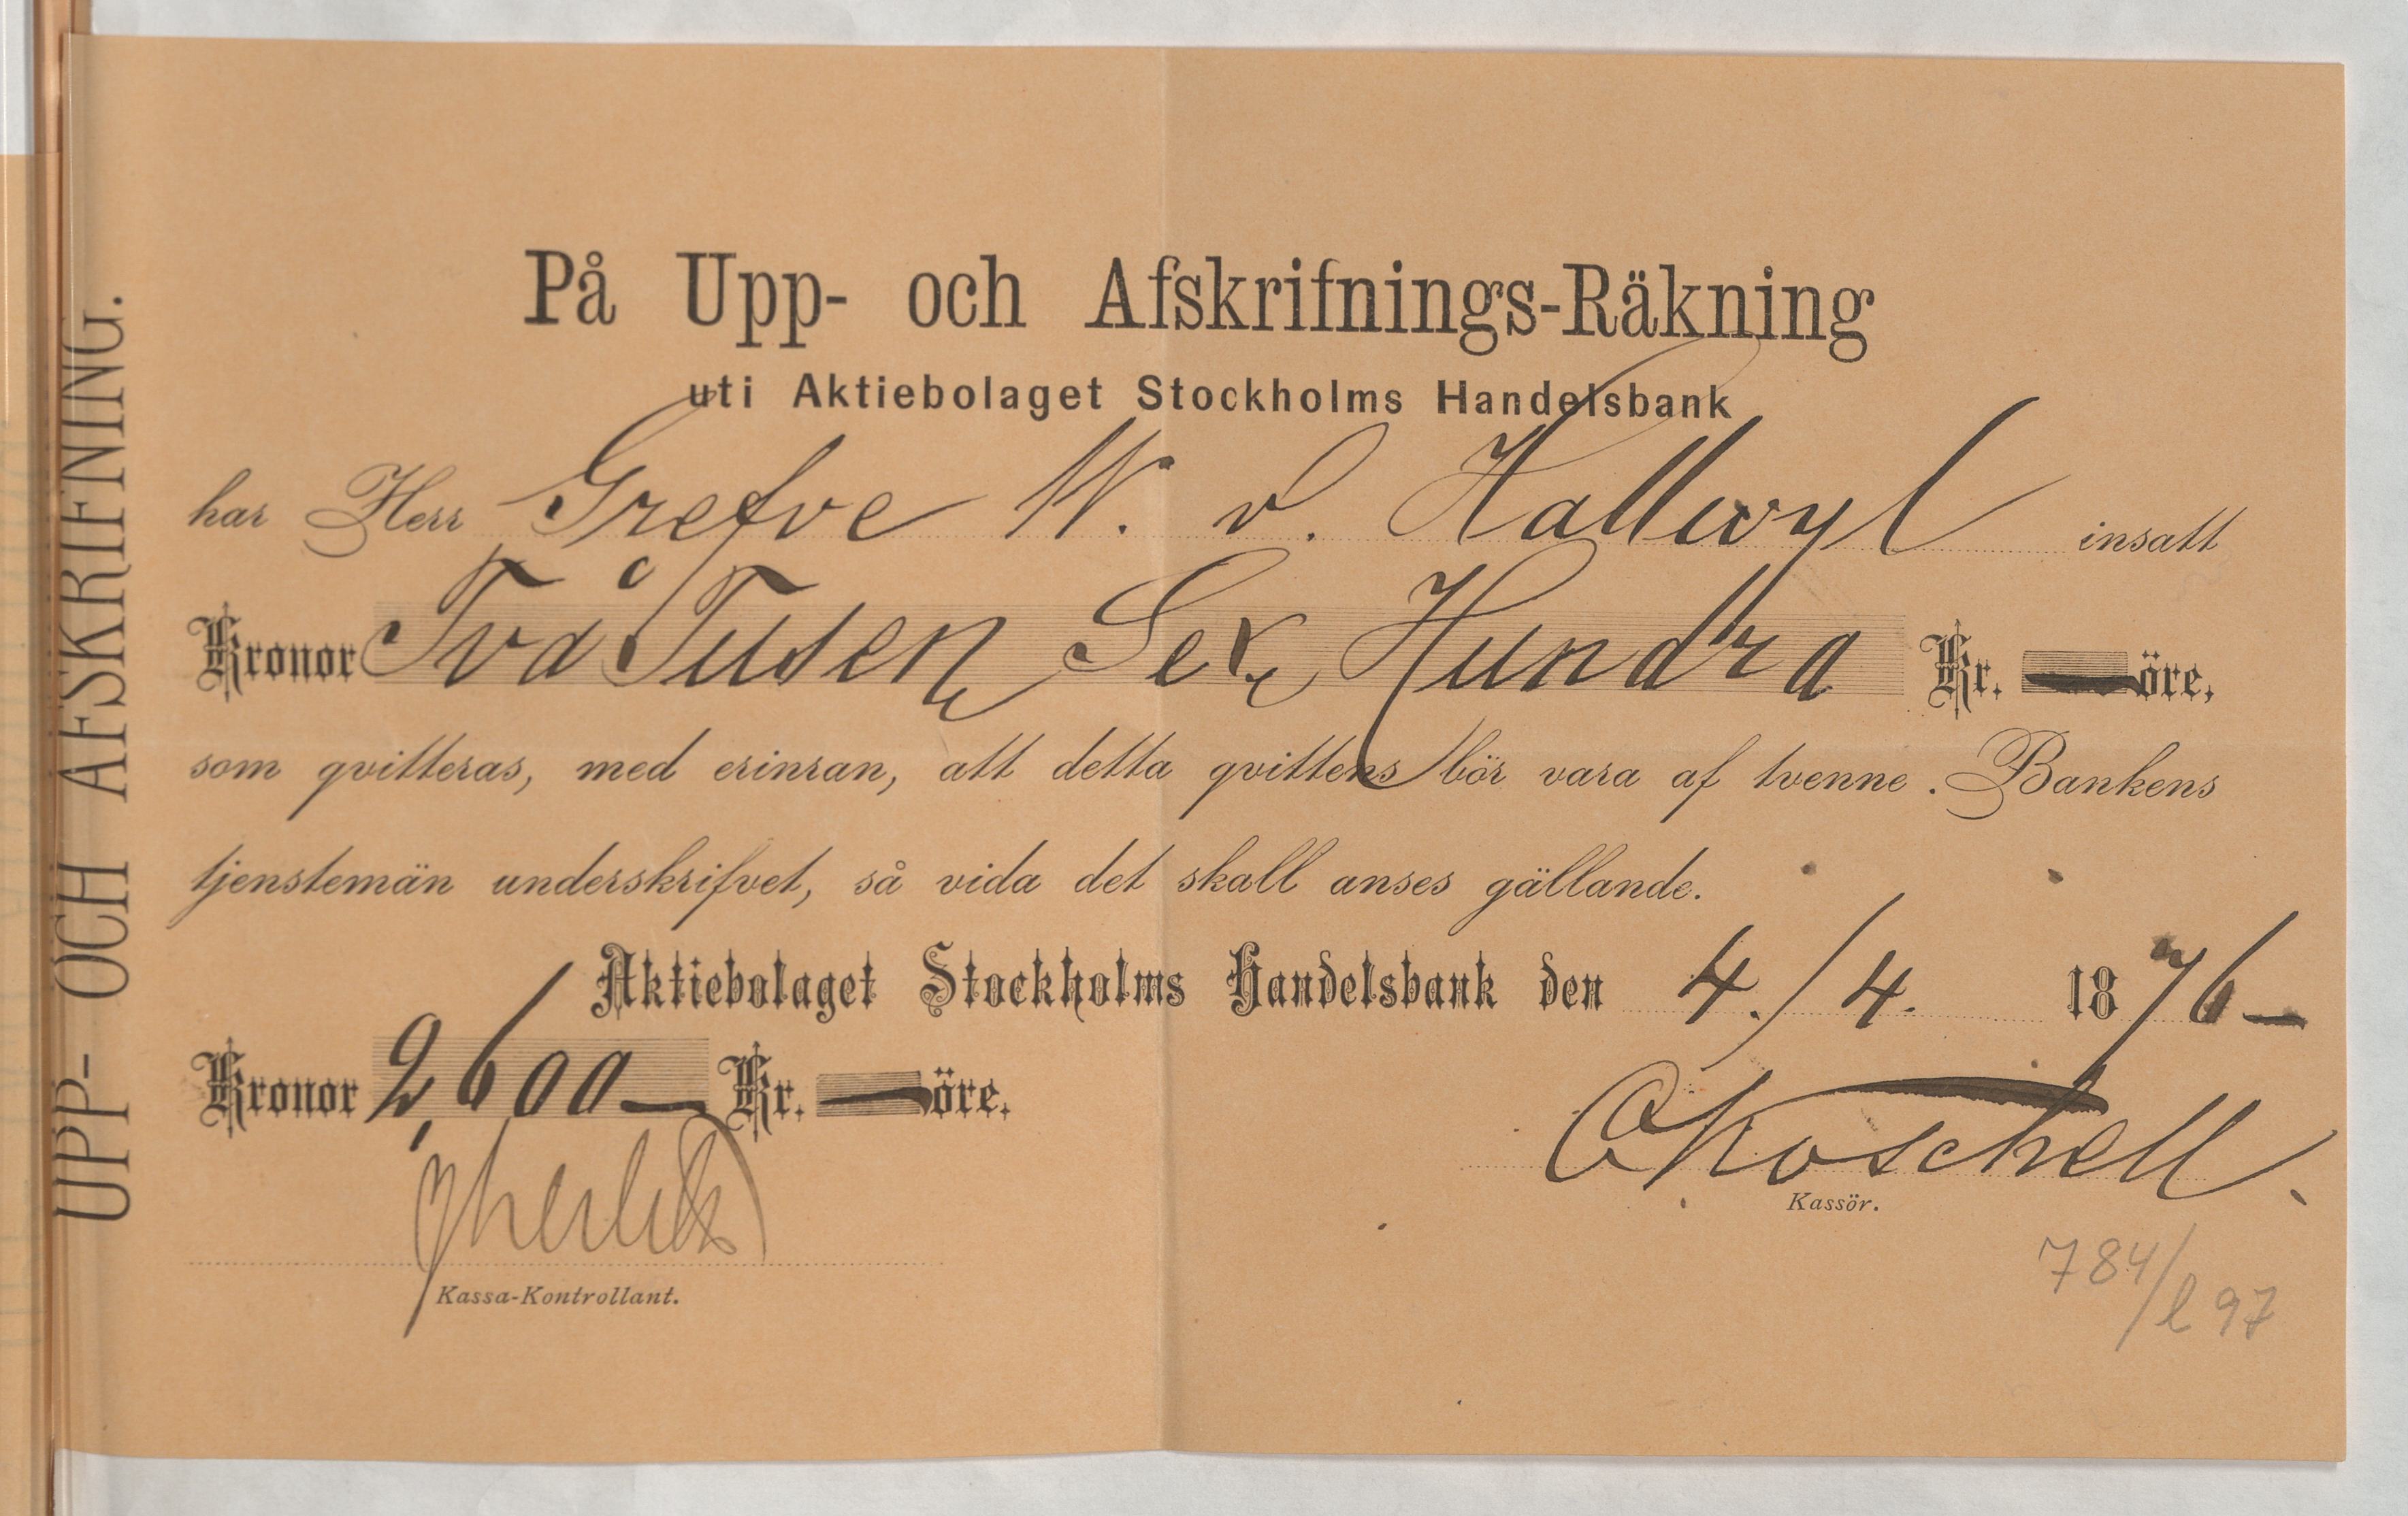 UPP- OCH AFSKRIFNING.
På Upp- och Afskrifnings-Räkning
uti Aktiebolaget Stockholms Handelsbank
har Herr Grefve W. v. Hallwyl insatt
Kronor Två Tusen Sex Hundra Kr. — öre,
som qvitteras, med erinran, att detta qvittens bör vara af tvenne Bankens
tjenstemän underskrifvet, så vida det skall anses gällande.
Aktiebolaget Stockholms Handelsbank den 4./4. 1876 —
Kronor 2,600 — Kr. — öre.
Kassör.
Kassa-Kontrollant.
784/l 97